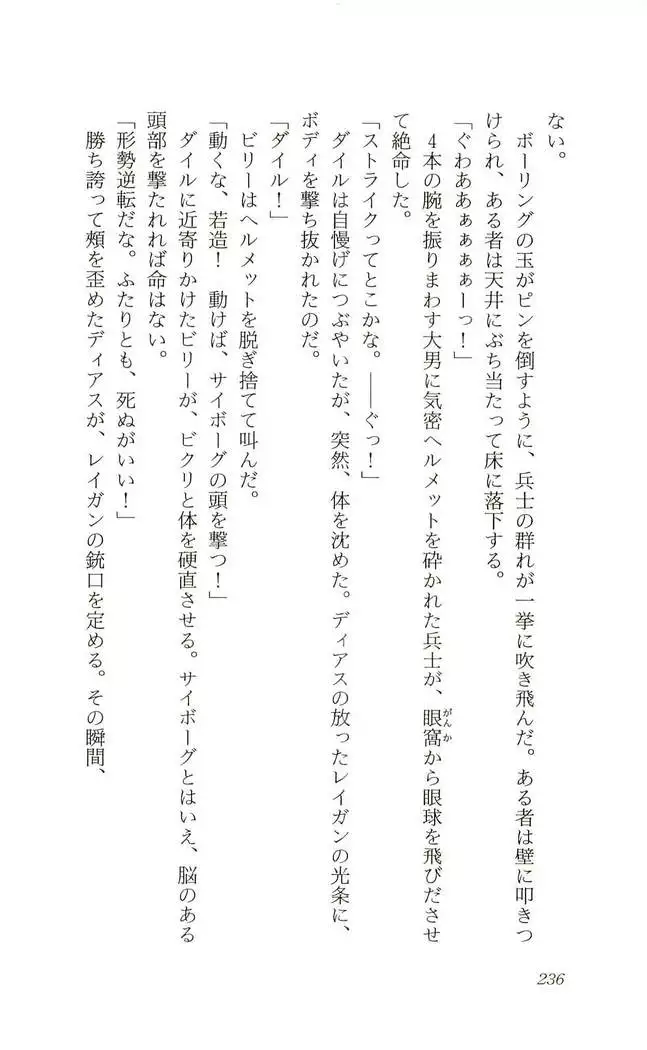 ない。
　ボーリングの玉がピンを倒すように、兵士の群れが一挙に吹き飛んだ。ある者は壁に叩きつ
けられ、ある者は天井にぶち当たって床に落下する。
「ぐわああぁぁぁぁーっ！」
　4本の腕を振りまわす大男に気密ヘルメットを砕かれた兵士が、眼窩がんかから眼球を飛びださせ
て絶命した。
「ストライクってとこかな。――ぐっ！」
　ダイルは自慢げにつぶやいたが、突然、体を沈めた。ディアスの放ったレイガンの光条に、
ボディを撃ち抜かれたのだ。
「ダイル！」
　ビリーはヘルメットを脱ぎ捨てて叫んだ。
「動くな、若造！　動けば、サイボーグの頭を撃つ！」
　ダイルに近寄りかけたビリーが、ビクリと体を硬直させる。サイボーグとはいえ、脳のある
頭部を撃たれれば命はない。
「形勢逆転だな。ふたりとも、死ぬがいい！」
　勝ち誇って頰を歪めたディアスが、レイガンの銃口を定める。その瞬間、
236